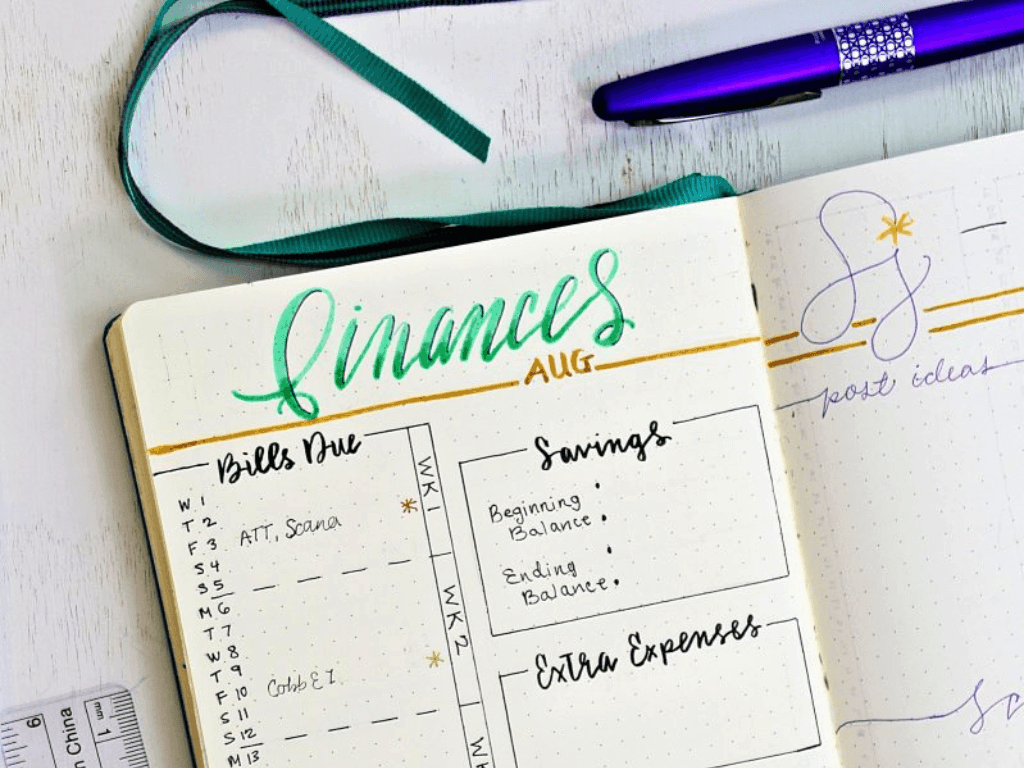 finances
AUG
Bills Due
W 1
T 2
F 3 ATT, Scana
S 4
S 5
M 6
T 7
W 8
T 9
F 10
S 11
S 12
M 13
WK 1
WK 2
Savings
Beginning
Balance:
Ending
Balance:
Extra Expenses
post ideas
6
China
mm 1